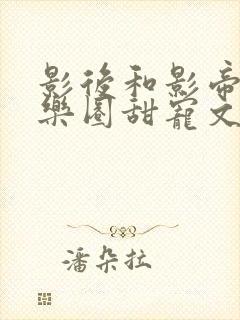 影後和影帝
樂園甜寵文
潘朵拉